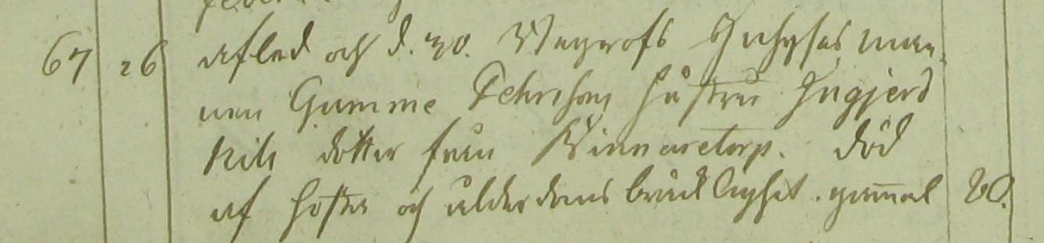 67 26 afled och d. 30. begrofs Inhyses man-
nen Gumme Pehrsons hustru Ingjerd
Nils dotter från Kinnaretorp. död
af hosta och ålderdoms bräcklighet. gammal 80.